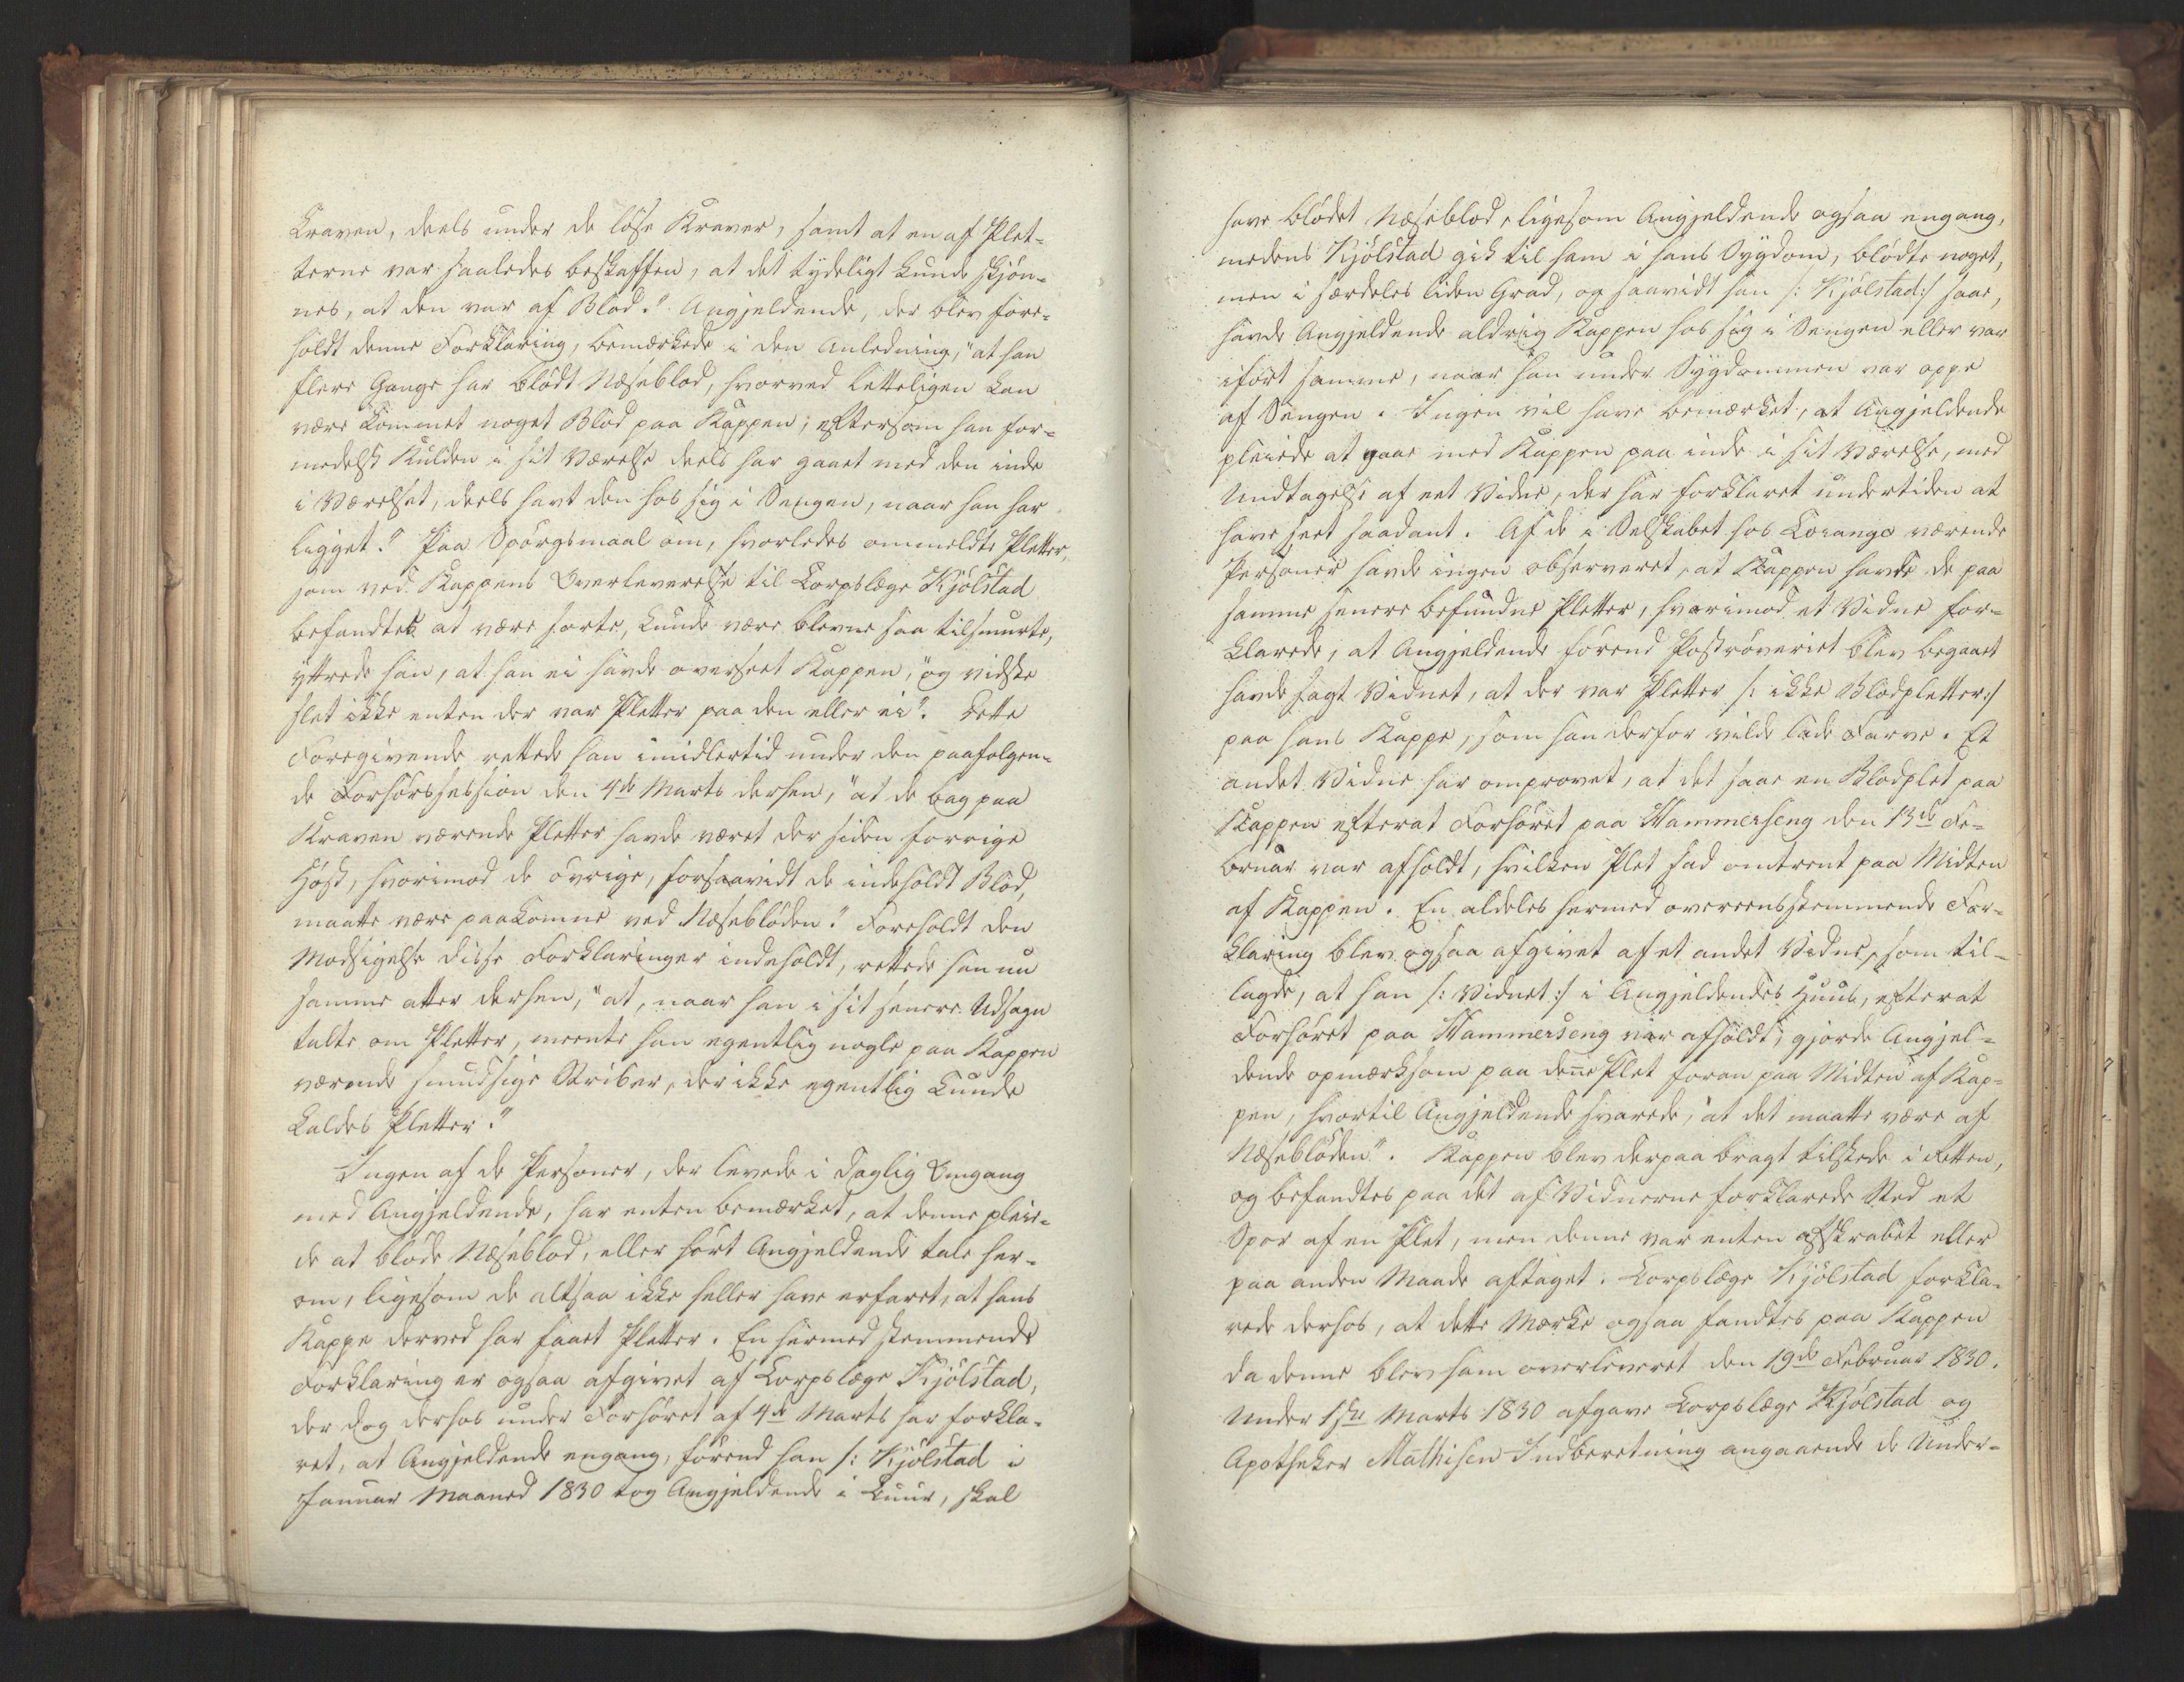 Kraven, deels under de løse Kraver, samt at en af Plet-
terne var saaledes beskaffen, at det tydeligt kunde skjøn-
nes, at den var af Blod." Angjeldende, der blev fore-
holdt denne Forklaring, bemærkede i den Anledning, "at han
flere Gange har blødt Næseblod, hvorved letteligen kan
være kommet noget Blod paa Kappen; eftersom han for-
medelst Kulden i sit Værelse deels har gaaet med den inde
i Værelset, deels havt den hos sig i Sengen, naar han har
ligget." Paa Spørgsmaal om, hvorledes ommeldte Pletter,
som ved Kappens Overleverelse til Corpslæge Kjölstad
befandtes at være sorte, kunde være blevne saa tilsmurte,
yttrede han, at han ei havde overseet Kappen, "og vidste
slet ikke enten der var Pletter paa den eller ei". Dette
Foregivende rettede han imidlertid under den paafølgen-
de Forhørssession den 4de Marts derhen, "at de bag paa
Kraven værende Pletter havde været der siden forrige
Høst, hvorimod de øvrige, forsaavidt de indeholdt Blod,
maatte være paakomne ved Næsebløden." Foreholdt den
Modsigelse disse Forklaringer indeholdt, rettede han nu
samme atter derhen, "at, naar han i sit senere Udsagn
talte om Pletter, meente han egentlig nogle paa Kappen
værende smudsige Striber, der ikke egentlig kunde
kaldes Pletter."
Ingen af de Personer, der levede i daglig Omgang
med Angjeldende, har enten bemærket, at denne pleie-
de at bløde Næseblod, eller hørt Angjeldende tale her-
om, ligesom de altsaa ikke heller have erfaret, at hans
Kappe derved har faaet Pletter. En hermed stemmende
Forklaring er ogsaa afgivet af Corpslæge Kjölstad,
der dog derhos under Forhøret af 4de Marts har forkla-
ret, at Angjeldende engang, førend han /: Kjölstad i
Januar Maaned 1830 tog Angjeldende i Cuur, skal
have blødet Næseblod, ligesom Angjeldende ogsaa engang,
medens Kjölstad gik til ham i hans Sygdom, blødte noget,
men i særdeles liden Grad, og saavidt han /: Kjölstad:/ saae,
havde Angjeldende aldrig Kappen hos sig i Sengen eller var
iført samme, naar han under Sygdommen var oppe
af Sengen. Ingen vil have bemærket, at Angjeldende
pleiede at gaae med Kappen paa inde i sit Værelse, med
Undtagelse af eet Vidne, der har forklaret undertiden at
have seet saadant. Af de i Selskabet hos Lorange værende
Personer havde ingen observeret, at Kappen havde de paa
samme senere befundne Pletter, hvorimod et Vidne for-
klarede, at Angjeldende førend Postrøveriet blev begaaet
havde sagt Vidnet, at der var Pletter /: ikke Blodpletter:/
paa hans Kappe, som han derfor vilde lade farve. Et
andet Vidne har omprovet, at det saae en Blodplet paa
Kappen efterat Forhøret paa Hammerseng den 13de Fe-
bruar var afholdt, hvilken Plet sad omtrent paa Midten
af Kappen. En aldeles hermed overeensstemmende For-
klaring blev ogsaa afgivet af et andet Vidne, som til-
lagde, at han /: Vidnet:/ i Angjeldendes Huus, efterat
Forhøret paa Hammerseng var afholdt, gjorde Angjel-
dende opmærksom paa deñe Plet foran paa Midten af Kap-
pen, hvortil Angjeldende svarede, "at det maatte være af
Næsebløden". Kappen blev derpaa bragt tilstede i Retten,
og befandtes paa det af Vidnerne forklarede Sted et
Spor af en Plet, men denne var enten afskrabet eller
paa anden Maade aftaget. Corpslæge Kjölstad forkla-
rede derhos, at dette Mærke ogsaa fandtes paa Kappen
da denne blev ham overleveret den 19de Februar 1830.
Under 1ste Marts 1830 afgave Corpslæge Kjölstad og
Apotheker Mathisen Indberetning angaaende de Under-